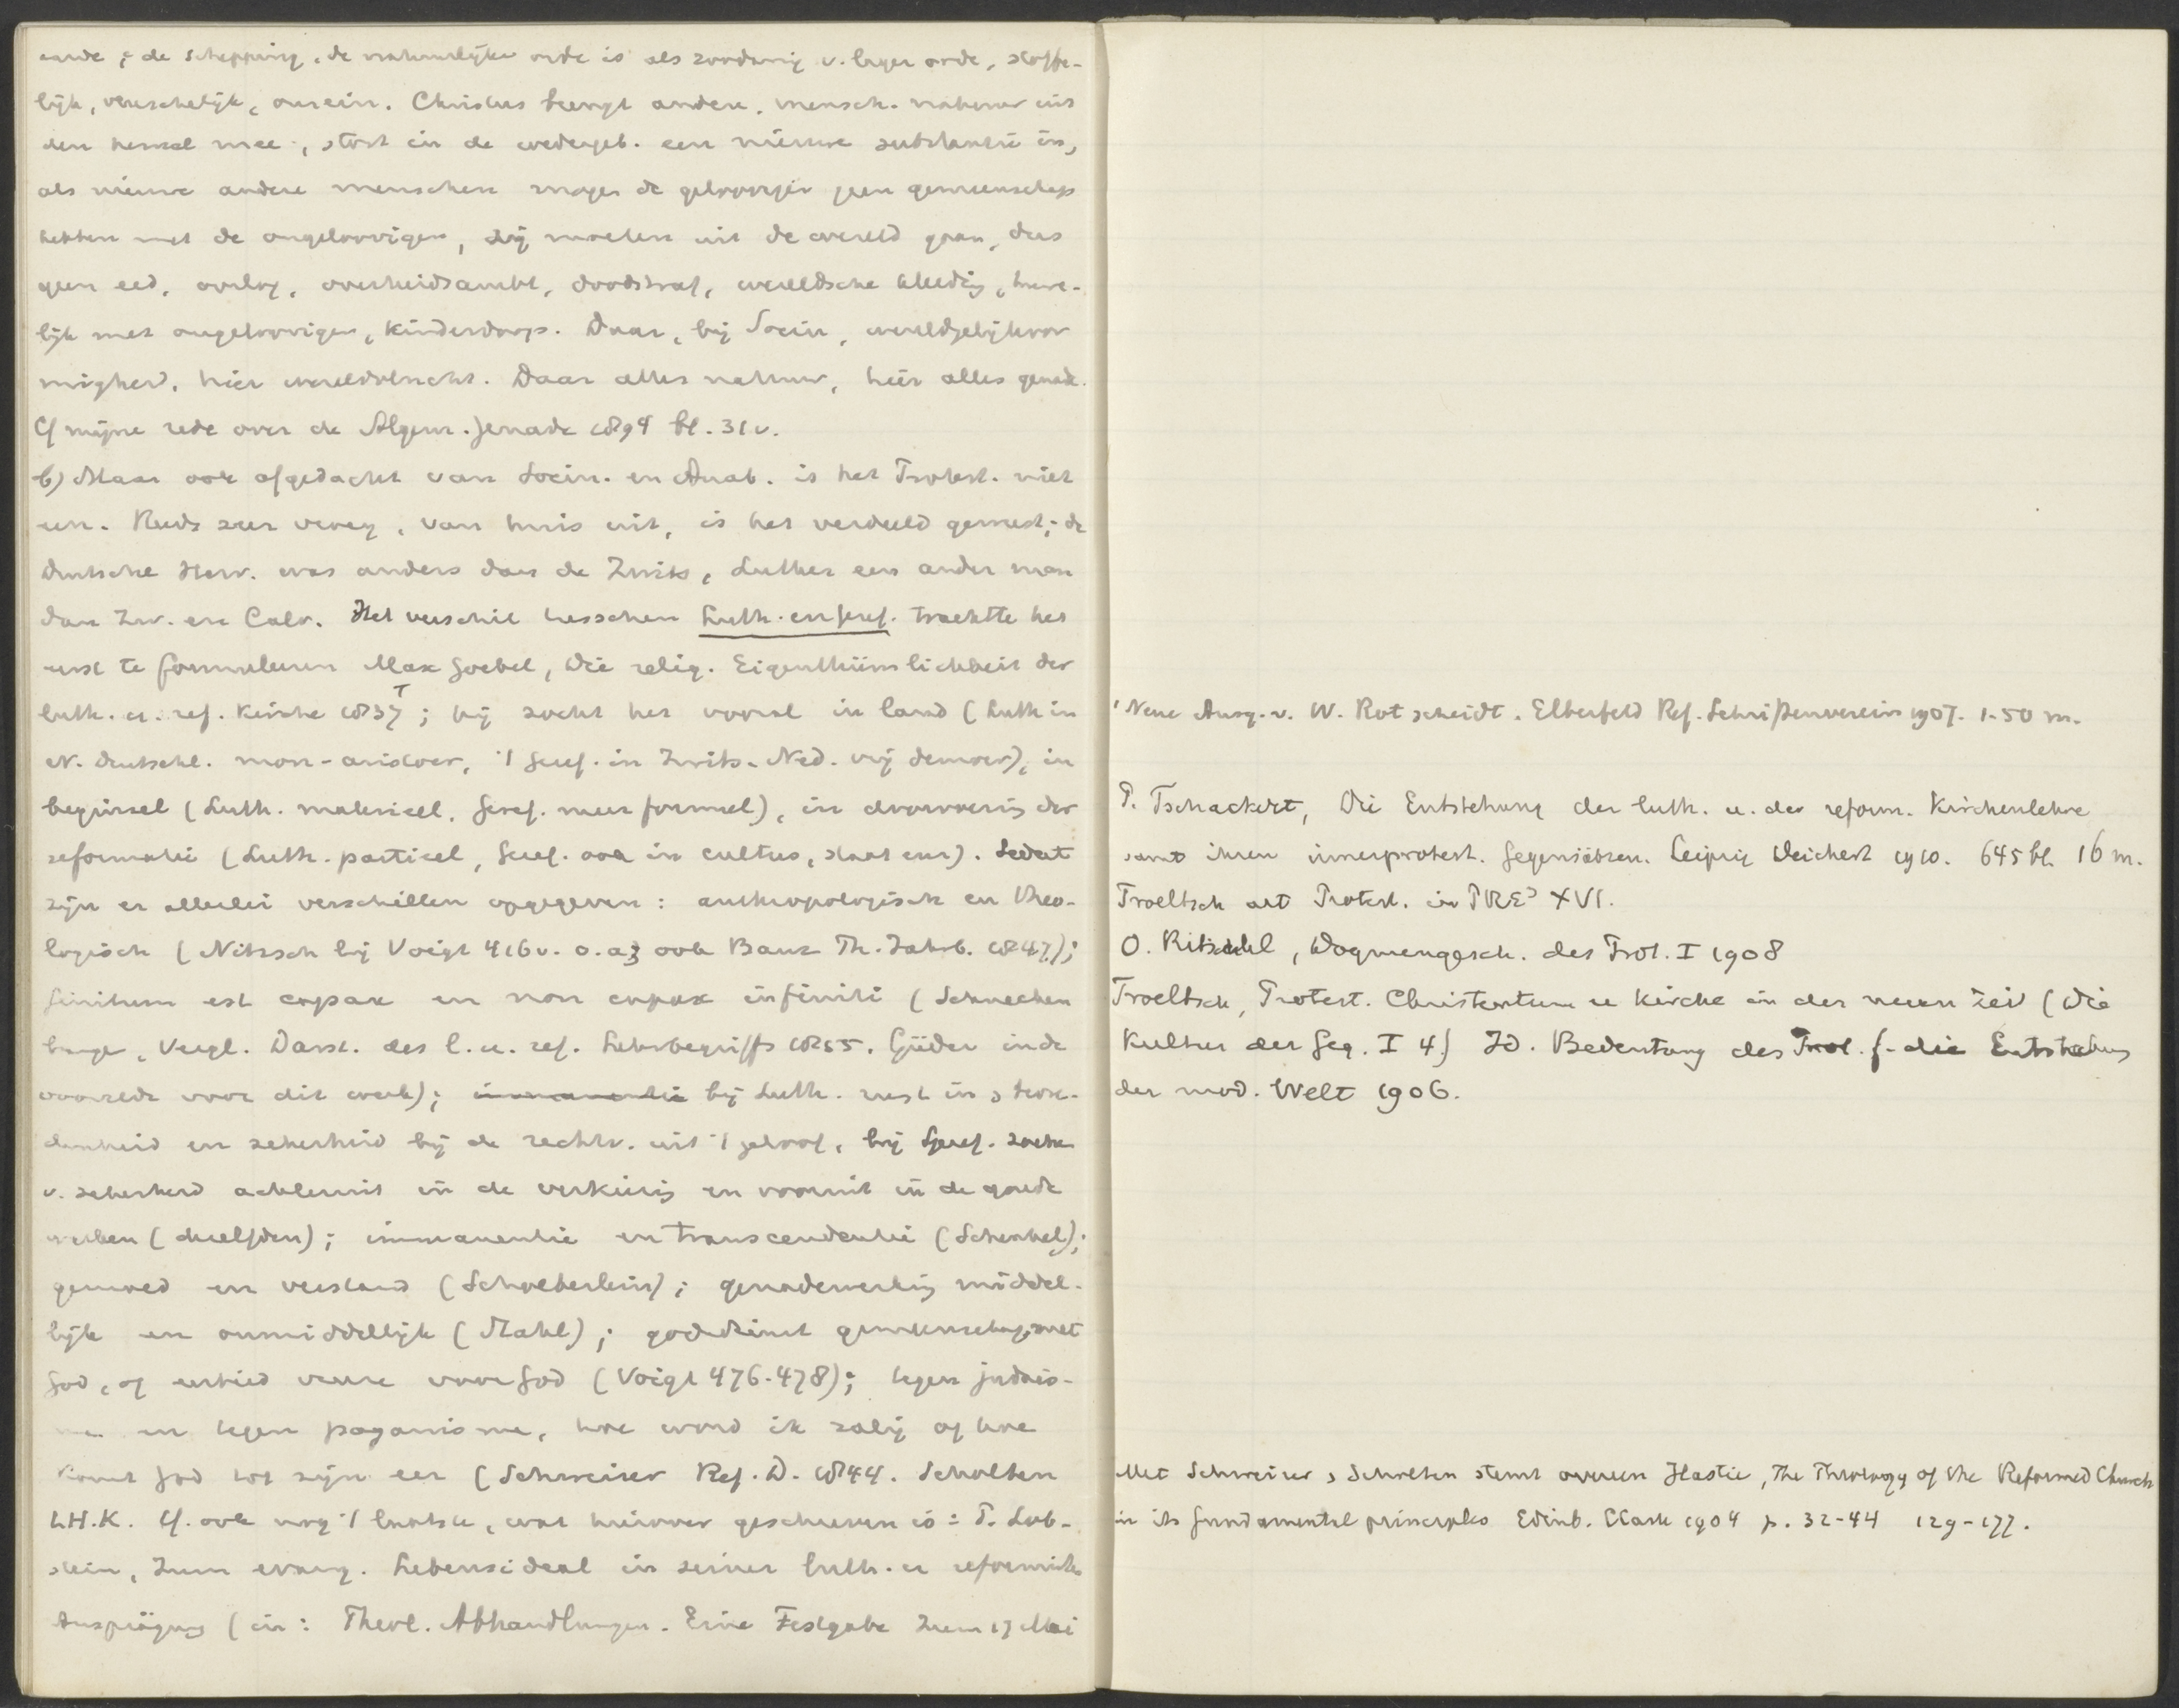 aarde; de schepping, de natuurlijke orde is als zoodanig v. lager orde, stoffe-
lijk, vleeschelijk, onrein. Christus brengt andere, mensch. natuur uit
den hemel mee, stort in de wedergeb. een nieuwe substantie in,
als nieuwe andere menschen mogen de geloovigen geen gemeenschap
hebben met de ongeloovigen, zij moeten uit de wereld gaan, dus
geen eed, oorlog, overheidsambt, doodstraf, wereldsche kleeding, huwe-
lijk met ongeloovigen, kinderdoop. Daar, bij Socin, wereldgelijkvor
migheid, hier wereldvlucht. Daar alles natuur, hier alles genade.
Cf mijne rede over de Algem. genade 1894 bl. 31v.
b) Maar ook afgedacht van Socin. en Anab. is het Protest. niet
een. Reeds zeer vroeg, van huis uit, is het verdeeld geweest; de
Duitsche Herv. was anders dan de Zwits, Luther een ander man
dan Zw. en Calv. Het verschil tusschen Luth. en Geref. trachtte het
eerst te formuleeren Max Goebel, Die relig. Eigenthümlichkeit der
luth. u. ref. Kirche 1837 1; hij zocht het vooral in land (Luth in
N. Deutschl. mon-aristocr, 't Geref. in Zwits. Ned. vrij democr), in
beginsel (Luth. materieel, Geref. meer formeel), in doorvoering der
reformatie (Luth. partieel, Geref. ook in cultus, staat enz). Sedert
zijn er allerlei verschillen opgegeven: anthropologisch en theo-
logisch (Nitzsch bij Voigt 416v. o.a; ook Baur Th. Jahrb. 1847);
finitum est capax en non capax infiniti (Schnecken
burger, Vergl. Darst. des l. u. ref. Lehrbegriffs 1855. Güder in de
voorrede voor dit werk); immanentie bij Luth. rust in
en zekerheid bij de rechtv. uit 't geloof, bij Geref. zoeken
v. zekerheid achteruit in de verkiezing en vooruit in de goede
werken; immanentie en transcendentie (Schenkel);
gemoed en verstand (Schoeberlein); genadewerking middel-
lijk en onmiddellijk (Stahl); godsdienst gemeenschap met
God, of eerbied vreeze voor God (Voigt 476-478); tegen judais-
me en tegen paganisme, hoe word ik zalig of hoe
komt God tot zijn eer (Schweizer Ref. D. 1844. Scholten
LH.K. Cf. ook nog 't laatste, wat hierover geschreven is: P. Lob-
stein, Zum evang. Lebensideal in seiner luth. u reformirten
Ausprägung (in: Theol. Abhandlungen. Eine Festgabe zum 17 Mai
1 Neue Ausg. v. W. Rotscheidt. Elberfeld Ref. Schriftenverein 1907. 1.50 m.
P. Tschackert, Die Entstehung der luth. u. der reform. Kirchenlehre
samt ihren innerprotest. Gegensätzen. Leipzig Deichert 1910. 645 bl. 16 m.
Troeltsch art Protest. in PRE3 XVI.
O. Ritschl, Dogmengesch. des Prot. I 1908
Troeltsch, Protest. Christentum u Kirche in der neuen Zeit (Die
Kultur der Geg. I 4.) Id. Bedeutung des Prot. f. die Entstehung
der mod. Welt 1906.
Met Schweizer, Scholten stemt overeen Hastie, The Theology of the Reformed Church
in its fundamental principles Edinb. Clark 1904 p. 32-44 129-177.